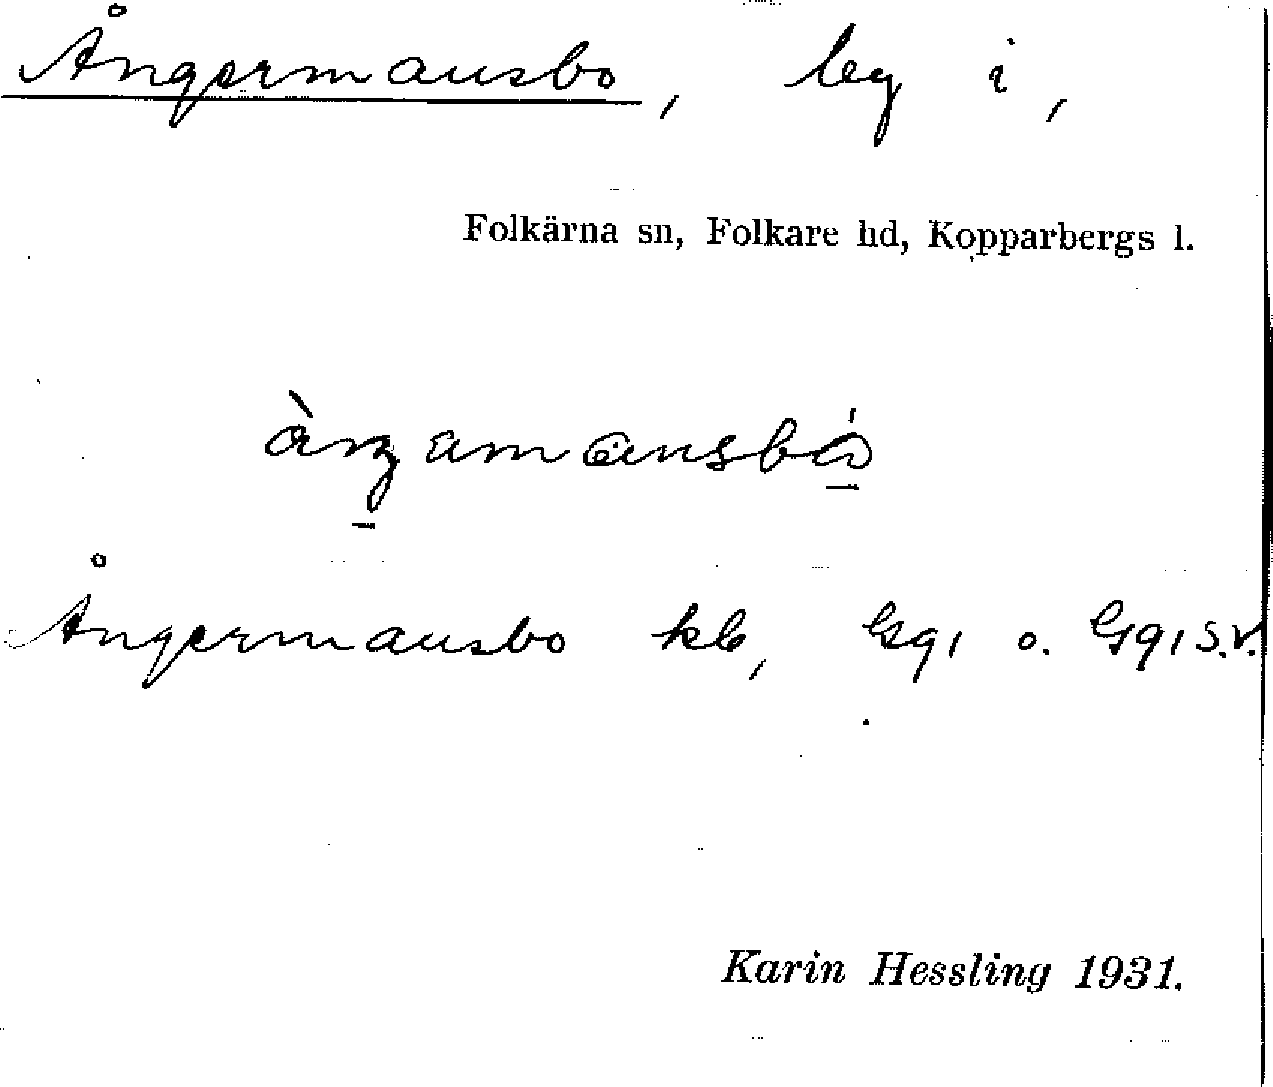 Ångermansbo, by i,
Folkärna sn, Folkare hd, Kopparbergs l.
Ångermansbo kb, Gg1 o. Gg1 s.v.
Karin Hessling 1931.